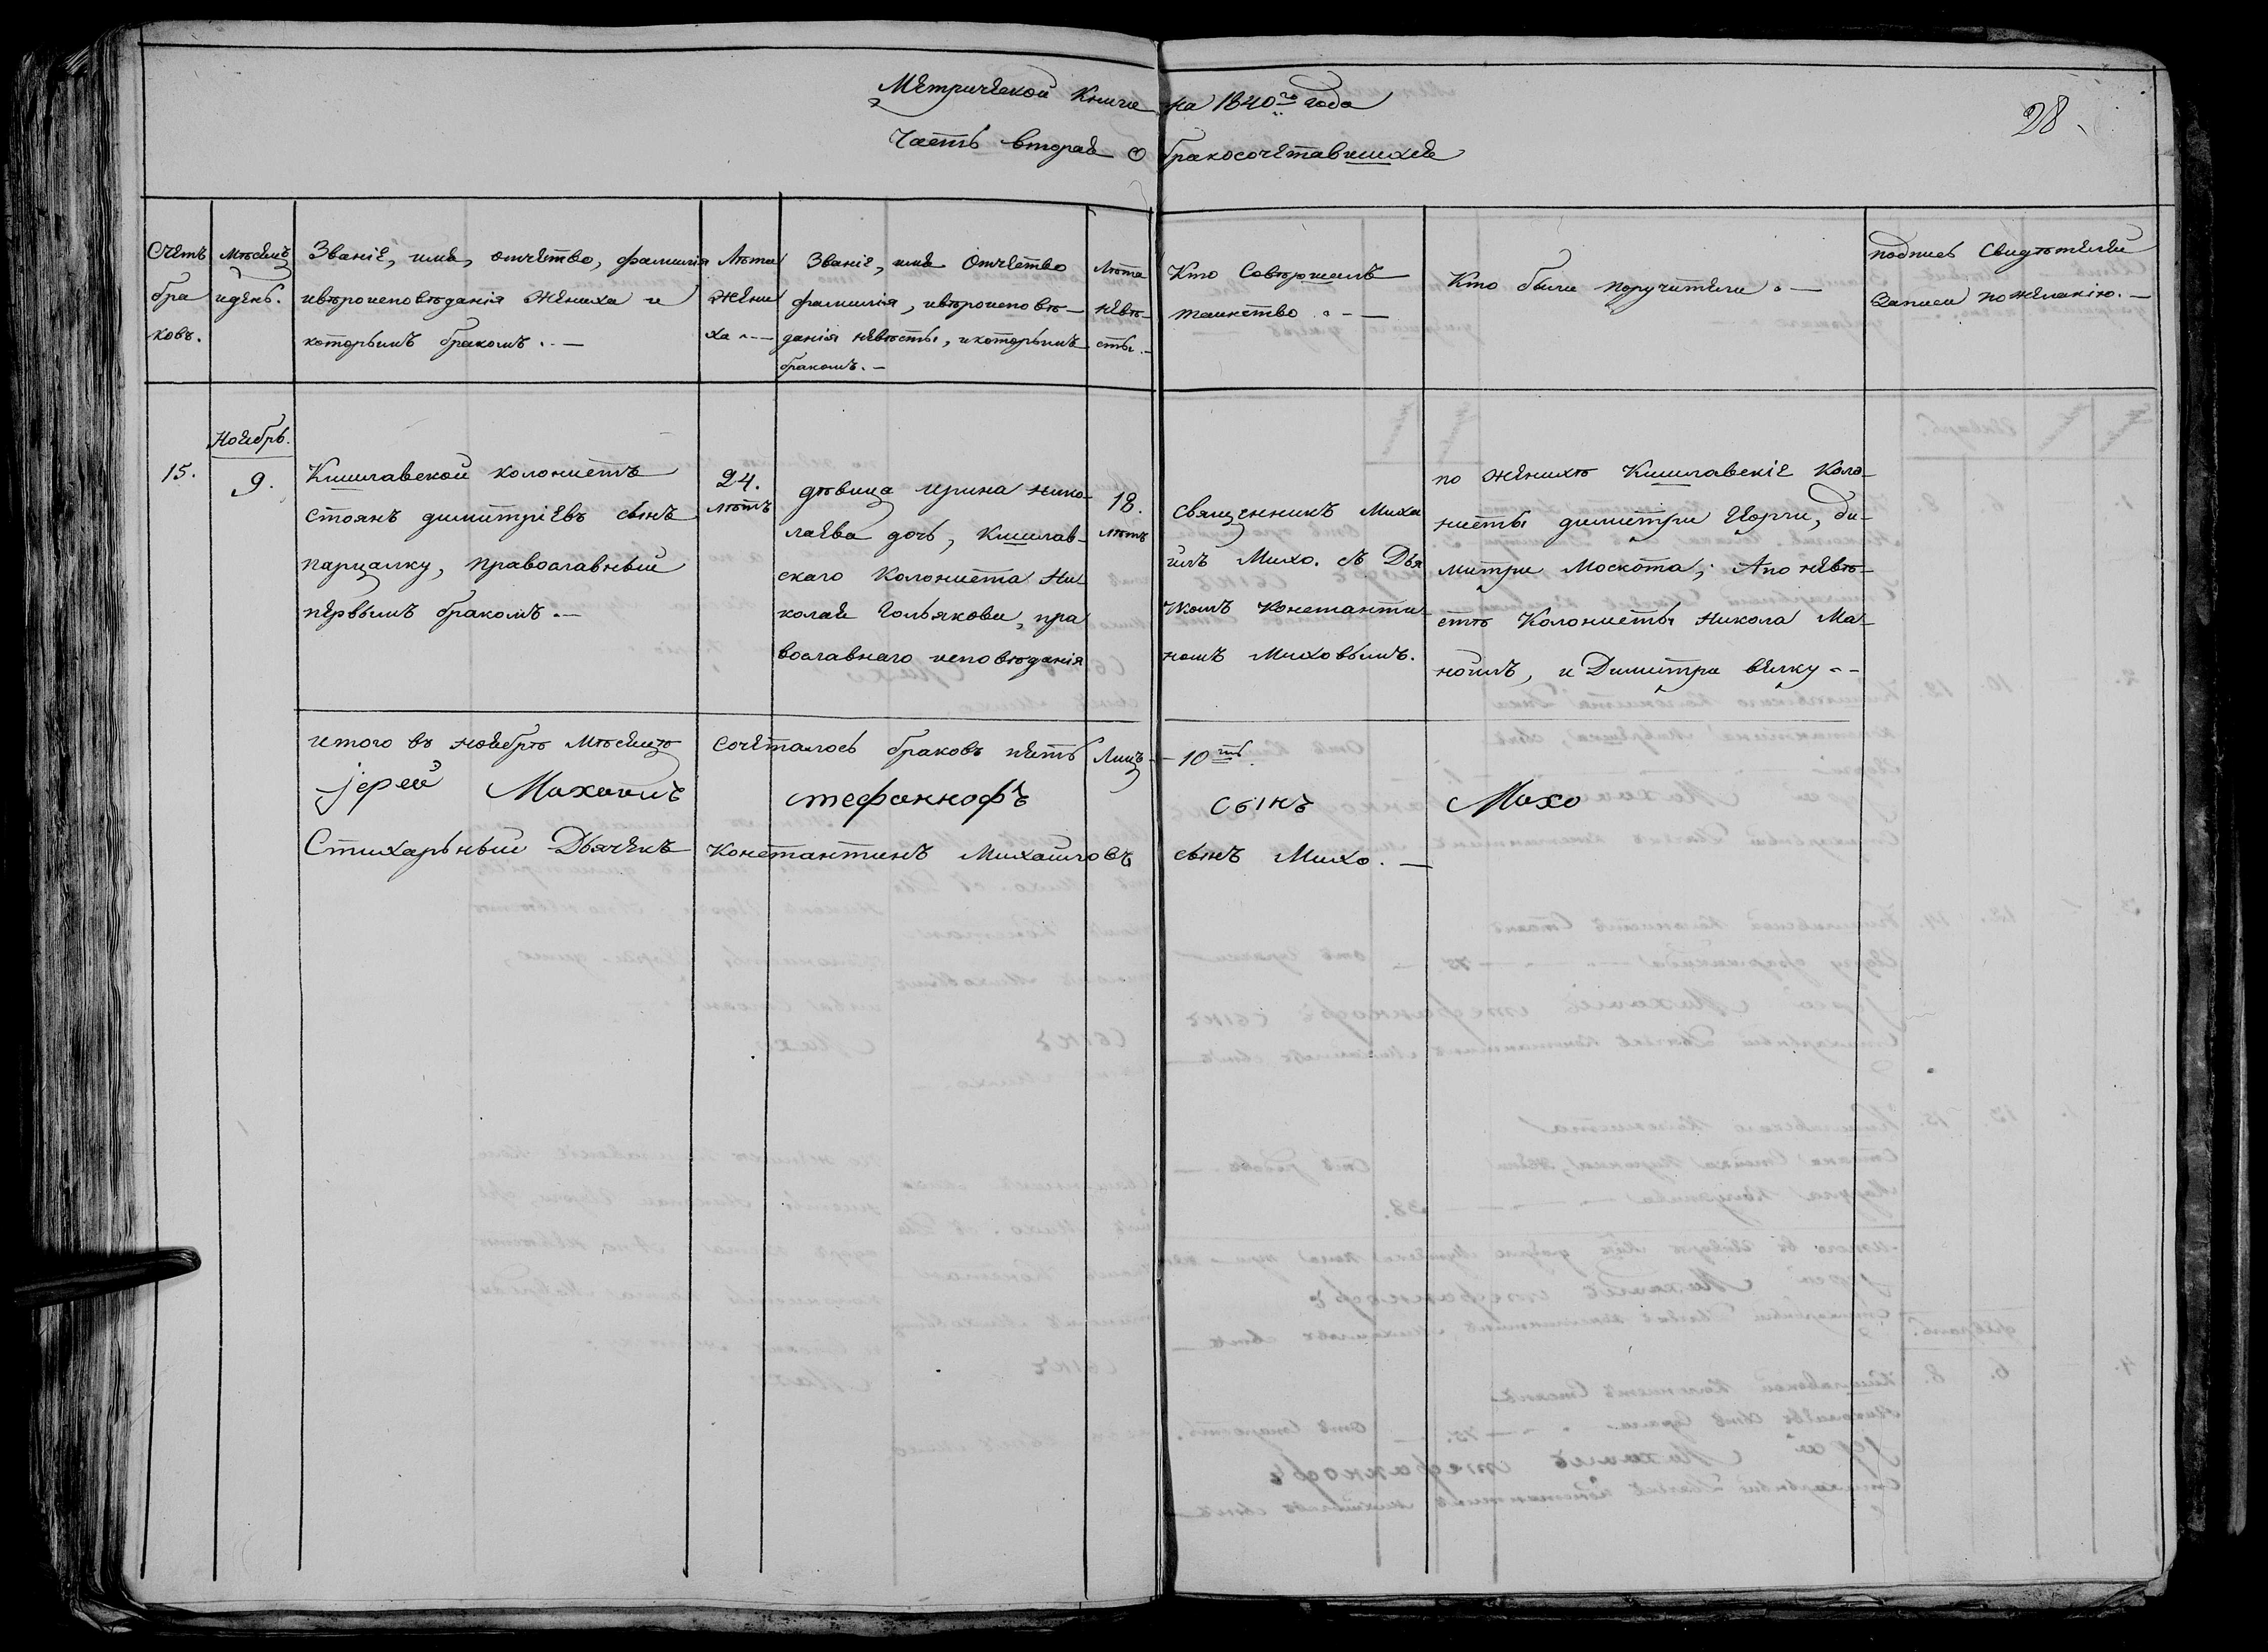 Метрической Книги на 1840го года
28
Часть вторая о бракосочетавшихся
Счетъ
бра
ковъ.
Мѣсяцъ
и день.
Званіе, имя, отчество, фамилія
и вѣроисповѣданія жениха и
которымъ бракомъ. —
Лѣта
жени
ха. —
Званіе, имя Отчество
фамилія, и вѣроисповѣ-
данія невѣсты, и которымъ
бракомъ. —
Лѣта
невѣ-
сты. —
Кто Совершалъ
таинство. —
Кто были поручители. —
подпись Свидѣтелей
Записи по желанію. —
15.
Ноябрь.
9.
Кишлавской колонистъ
Стоянъ димитріевъ сынъ
парцалку, православный
первымъ бракомъ. —
24.
лѣтъ
дѣвица ирина нико-
лаева дочь, Кишлав-
скаго Колониста Ни
колая Гольякови, пра
вославнаго исповѣданія
18.
лѣтъ
Священникъ Миха
илъ Михо. съ Дья
чкомъ Константи
номъ Миховымъ.
по женихѣ Кишлавскіе Коло-
нисты димитри Иорги, ди-
митри Москота; А по невѣ-
стѣ Колонисты Никола Ма-
ноилъ, и Димитри вилку --
итого въ ноябрѣ Мѣсяцѣ сочеталось браковъ пять Лицъ - 10ть.
јерей Михаилъ стефанкофъ сынъ Михо
Стихарьный Дьячекъ Константинъ Михайловъ сынъ Михо. —